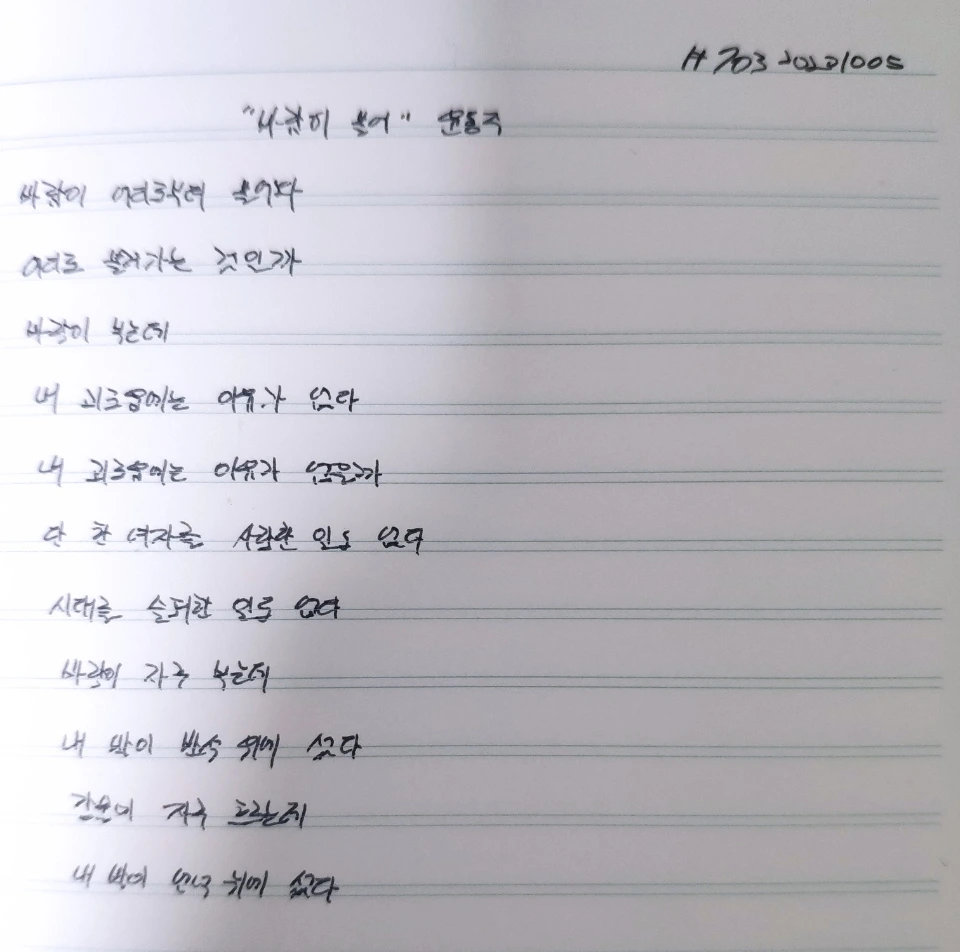 H 703 20221005
"바람이 불어" 윤동주
바람이 어디로부터 불어와
어디로 불려가는 것인가
바람이 부는데
내 괴로움에는 이유가 없다
내 괴로움에는 이유가 없을까
단 한 여자를 사랑한 일도 없다
시대를 슬퍼한 일도 없다
바람이 자꾸 부는데
내 발이 반석 위에 섰다
강물이 자꾸 흐르는데
내 발이 언덕 위에 섰다